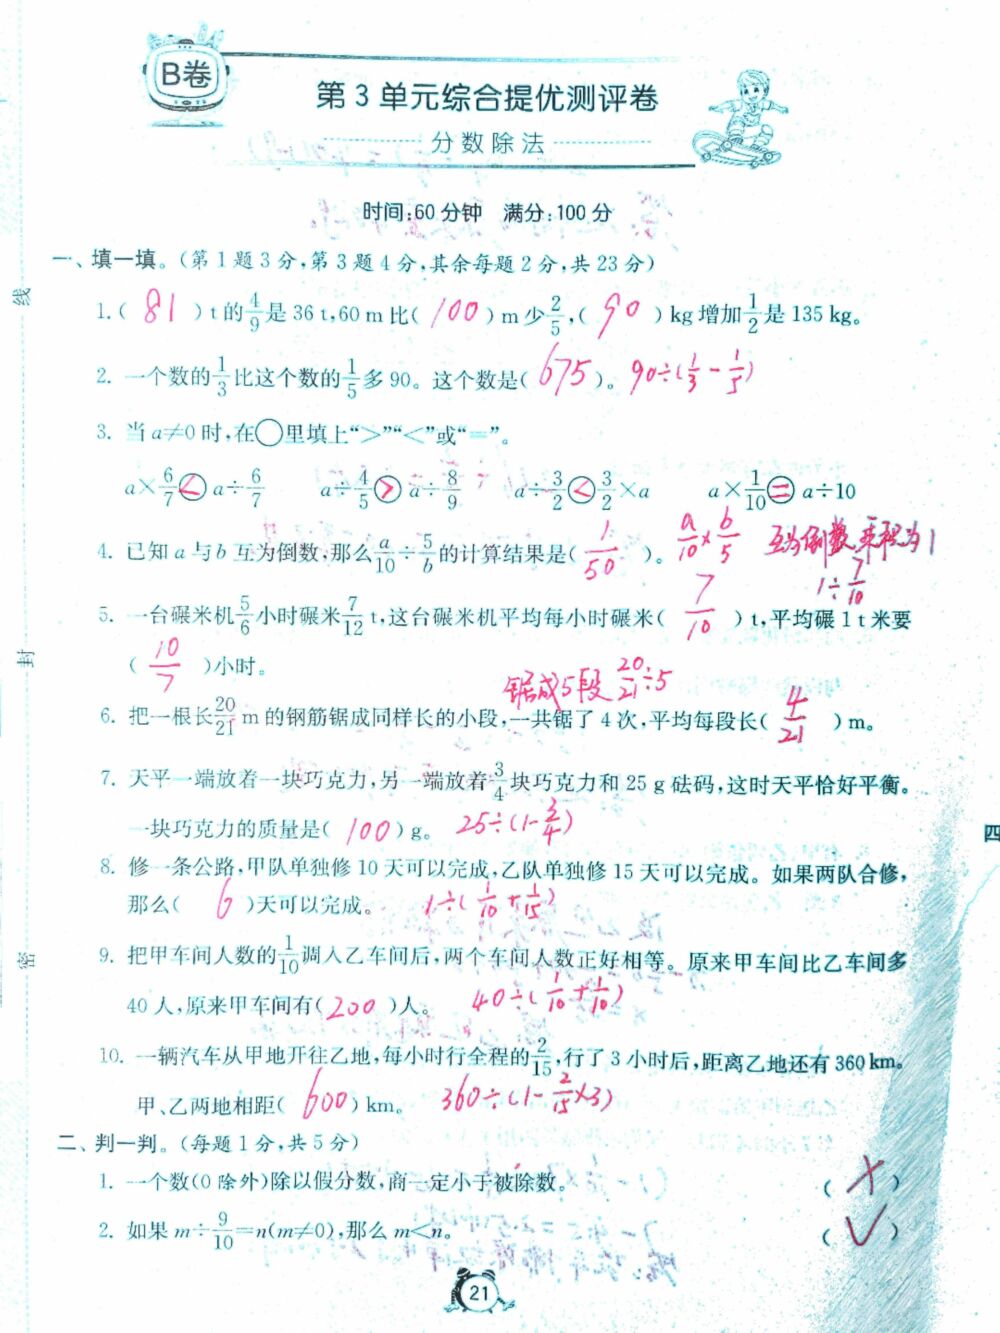 B卷
第3单元综合提优测评卷
分数除法
时间:60分钟 满分:100分
一、填一填。(第1题3分,第3题4分,其余每题2分,共23分)
1.( 81 )t的4/9是36 t,60 m比( 100 )m少2/5,( 90 )kg增加1/2是135 kg。
2. 一个数的1/3比这个数的1/5多90。这个数是( 675 )。 90÷(1/3-1/5)
3. 当a≠0时,在○里填上“>”“<”或“=”。
a×6/7<a÷6/7 a÷4/5>a÷8/9 a÷3/2<3/2×a a×1/10=a÷10
a/10×b/5 互为倒数,乘积为1
4. 已知a与b互为倒数,那么a/10÷5/b的计算结果是( 1/50 )。
1÷7/10
5. 一台碾米机5/6小时碾米7/12 t,这台碾米机平均每小时碾米( 7/10 )t,平均碾1 t米要
( 10/7 )小时。
锯成5段 20/21÷5
6. 把一根长20/21 m的钢筋锯成同样长的小段,一共锯了4次,平均每段长( 4/21 )m。
7. 天平一端放着一块巧克力,另一端放着3/4块巧克力和25 g砝码,这时天平恰好平衡。
一块巧克力的质量是( 100 )g。 25÷(1-3/4)
四
8. 修一条公路,甲队单独修10天可以完成,乙队单独修15天可以完成。如果两队合修,
那么( 6 )天可以完成。 1÷(1/10+1/15)
9. 把甲车间人数的1/10调入乙车间后,两个车间人数正好相等。原来甲车间比乙车间多
40人,原来甲车间有( 200 )人。 40÷(1/10+1/10)
10. 一辆汽车从甲地开往乙地,每小时行全程的2/15,行了3小时后,距离乙地还有360 km。
甲、乙两地相距( 600 )km。 360÷(1-2/15×3)
二、判一判。(每题1分,共5分)
1. 一个数(0除外)除以假分数,商一定小于被除数。 ( × )
2. 如果m÷9/10=n(m≠0),那么m<n。 ( √ )
21
线
封
密